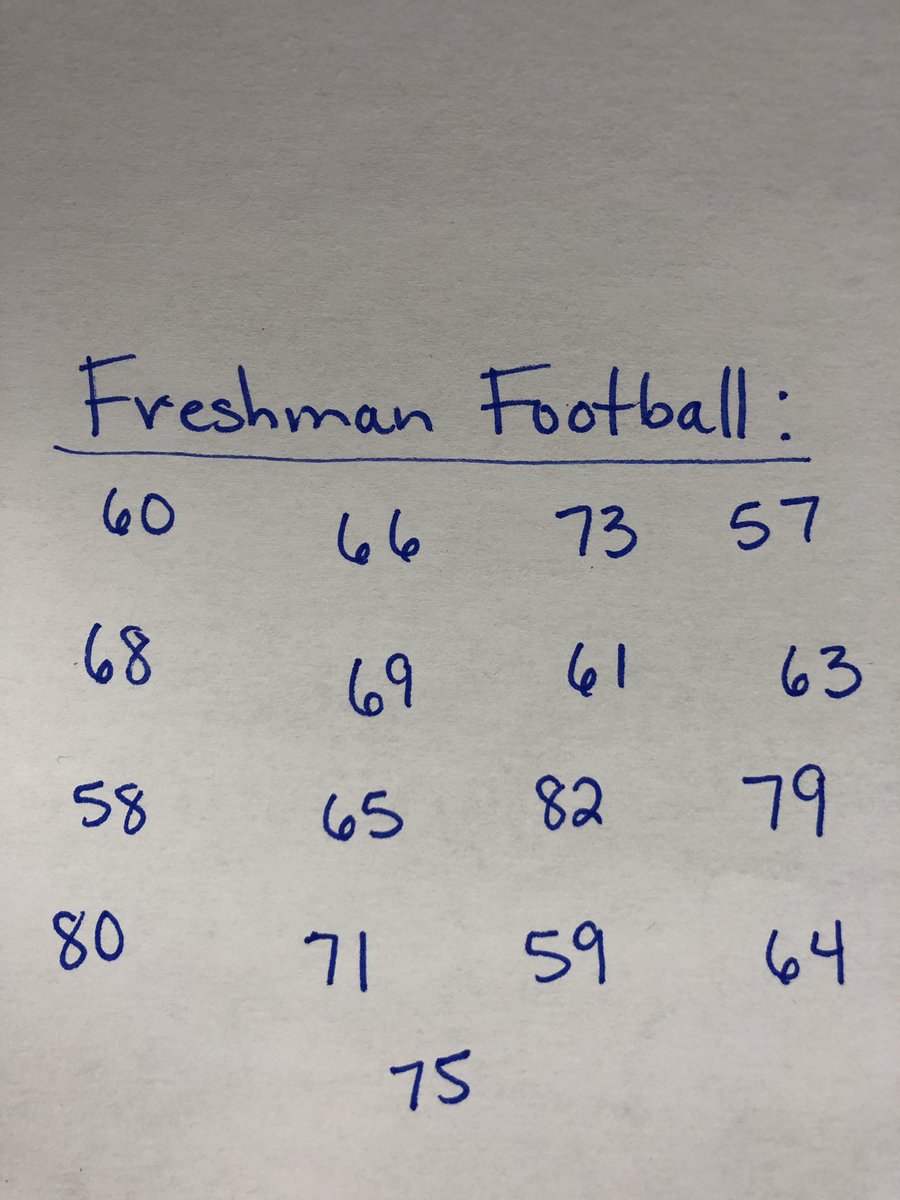 Freshman Football:
60 66 73 57
68 69 61 63
58 65 82 79
80 71 59 64
75